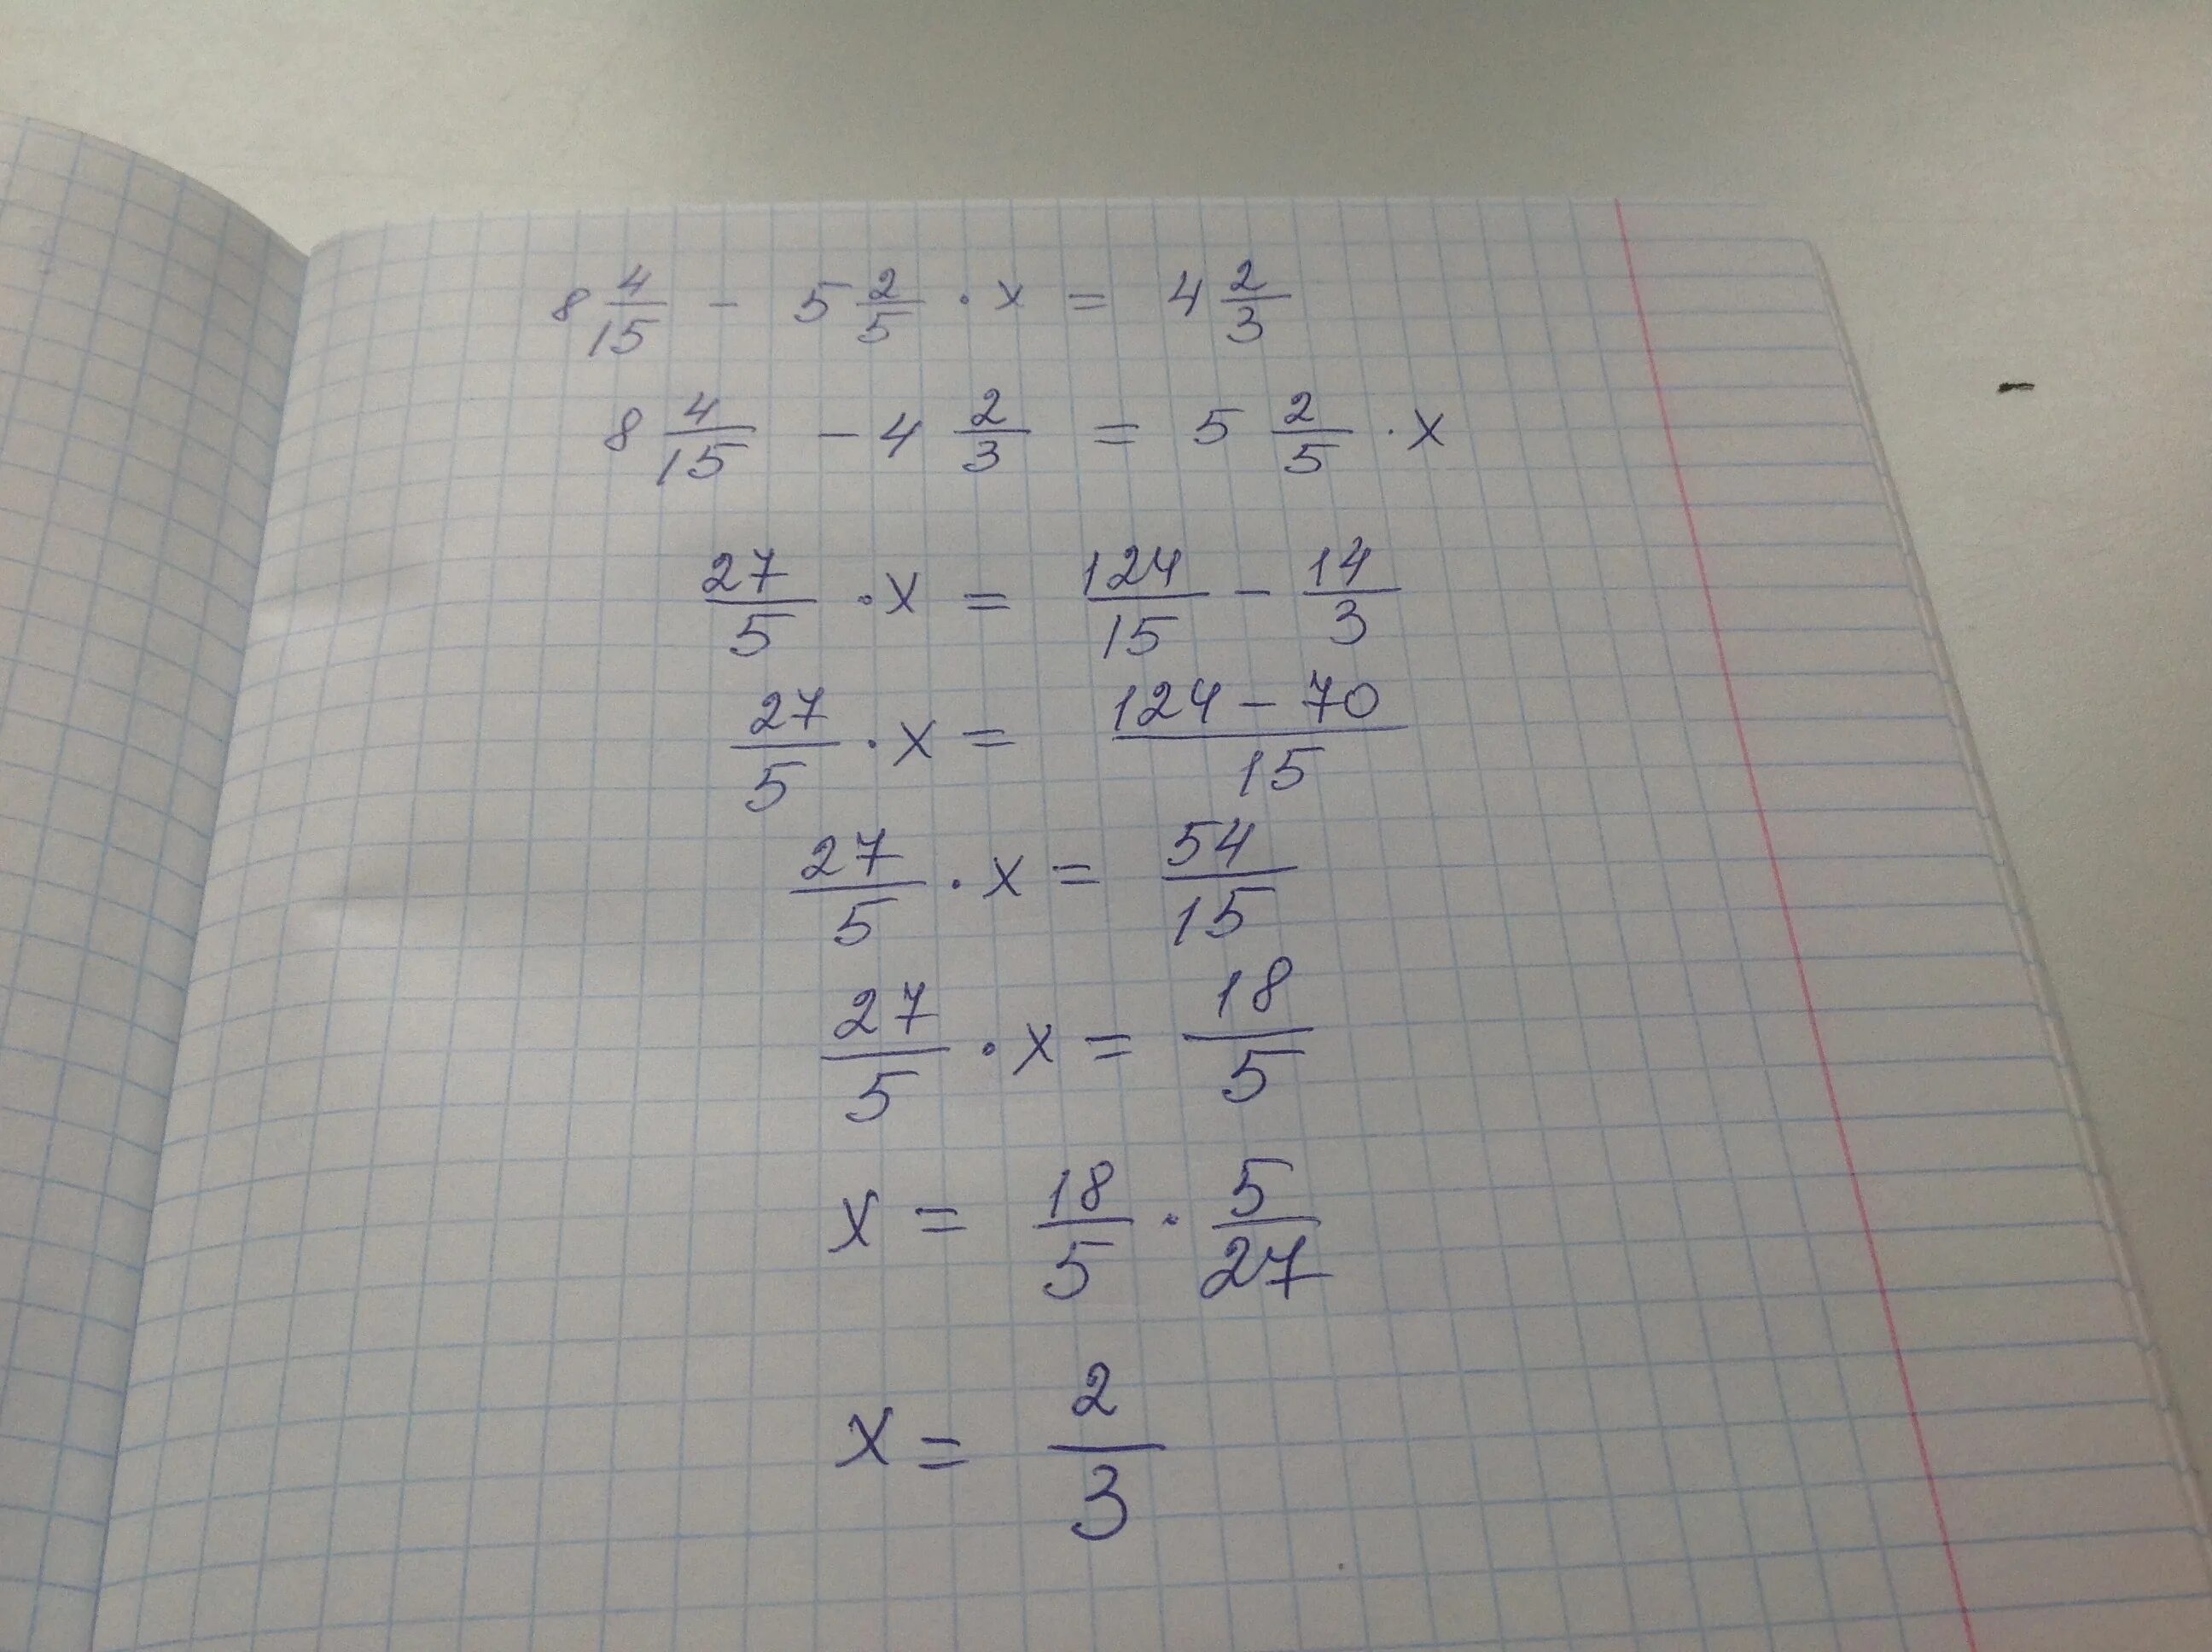 8 4/15 - 5 2/5 · x = 4 2/3
8 4/15 - 4 2/3 = 5 2/5 · x
27/5 · x = 124/15 - 14/3
27/5 · x = (124 - 70)/15
27/5 · x = 54/15
27/5 · x = 18/5
x = 18/5 · 5/27
x = 2/3